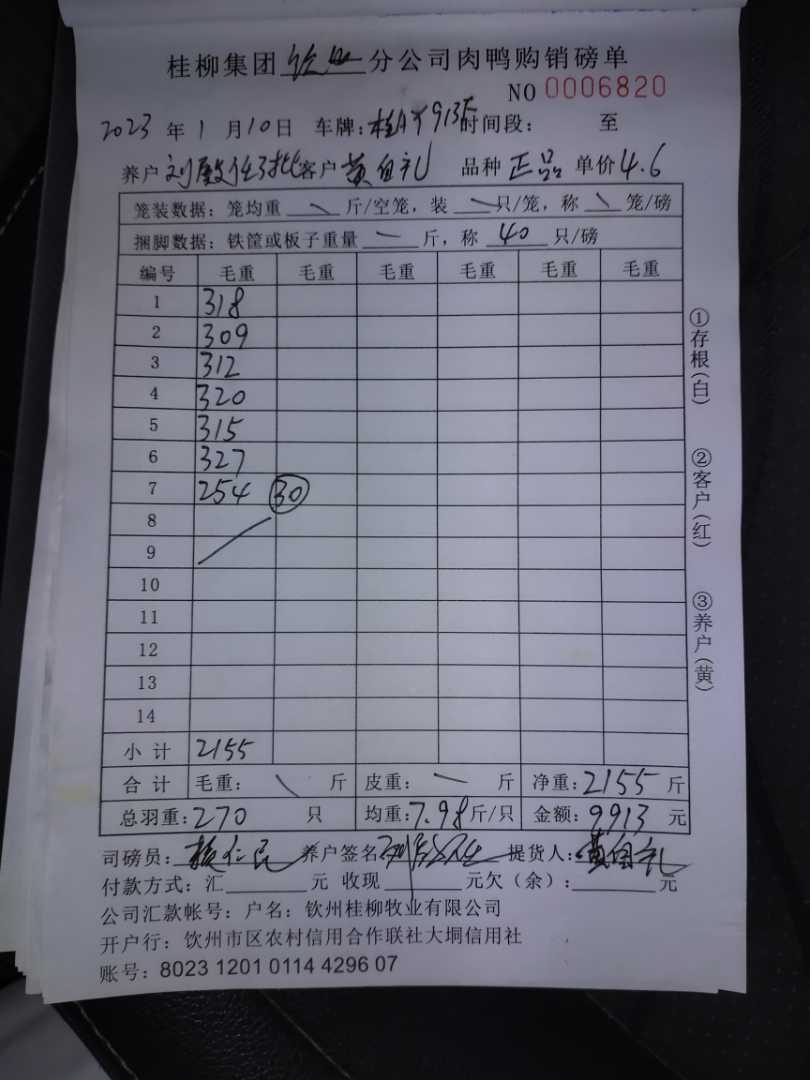 桂柳集团钦州分公司肉鸭购销磅单
NO 0006820
2023 年 1 月 10 日 车牌: 913F 时间段: 至
养户 刘 客户 黄自礼 品种 正品 单价 4.6
笼装数据: 笼均重 \ 斤/空笼, 装 \ 只/笼, 称 \ 笼/磅
捆脚数据: 铁筐或板子重量 — 斤, 称 40 只/磅
编号 毛重 毛重 毛重 毛重 毛重 毛重
1 318
2 309
3 312
4 320
5 315
6 327
7 254 30
8
9
10
11
12
13
14
小计 2155
合计 毛重: \ 斤 皮重: — 斤 净重: 2155 斤
总羽重: 270 只 均重: 7.98 斤/只 金额: 9913 元
司磅员: 养户签名 提货人: 黄自礼
付款方式: 汇 元 收现 元欠(余): 元
公司汇款帐号: 户名: 钦州桂柳牧业有限公司
开户行: 钦州市区农村信用合作联社大垌信用社
账号: 8023 1201 0114 4296 07
①存根(白)
②客户(红)
③养户(黄)